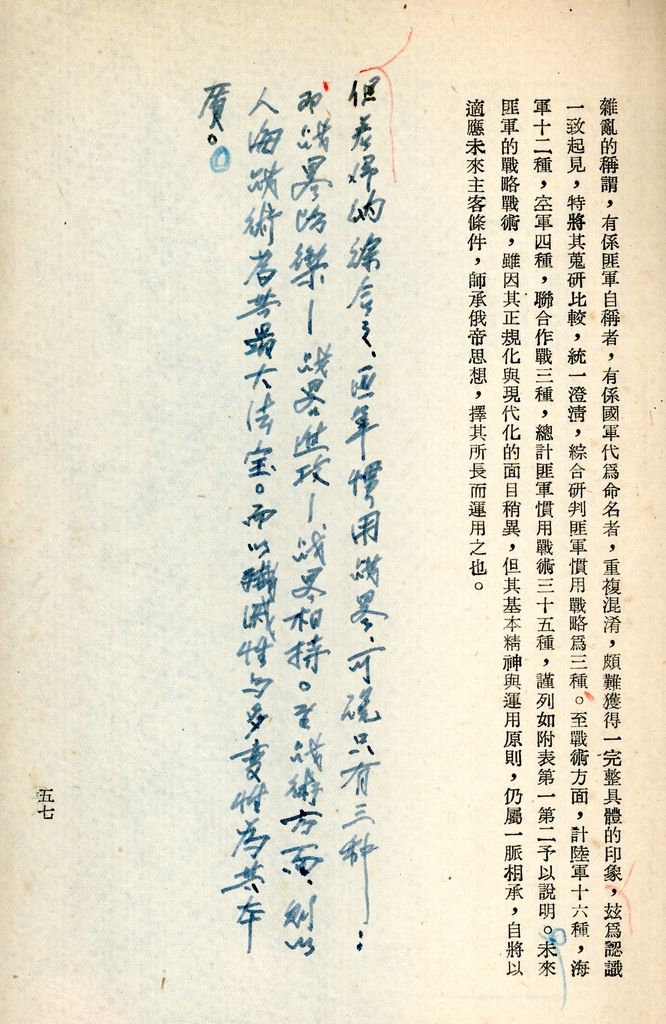 雜亂的稱謂，有係匪軍自稱者，有係國軍代爲命名者，重複混淆，頗難獲得一完整具體的印象，玆爲認識
一致起見，特將其蒐研比較，統一澄淸，綜合研判匪軍慣用戰略爲三種。至戰術方面，計陸軍十六種，海
軍十二種，空軍四種，聯合作戰三種，總計匪軍慣用戰術三十五種，謹列如附表第一第二予以說明。未來
匪軍的戰略戰術，雖因其正規化與現代化的面目稍異，但其基本精神與運用原則，仍屬一脈相承，自將以
適應未來主客條件，師承俄帝思想，擇其所長而運用之也。
但嚴得的綜合之、匪軍慣用战畧、可說只有三种：
即战畧防禦—战畧進攻—战畧相持。至战術方面、則以
人海战術為其最大法宝。而以殲滅性与多变性為其本
質。
五七